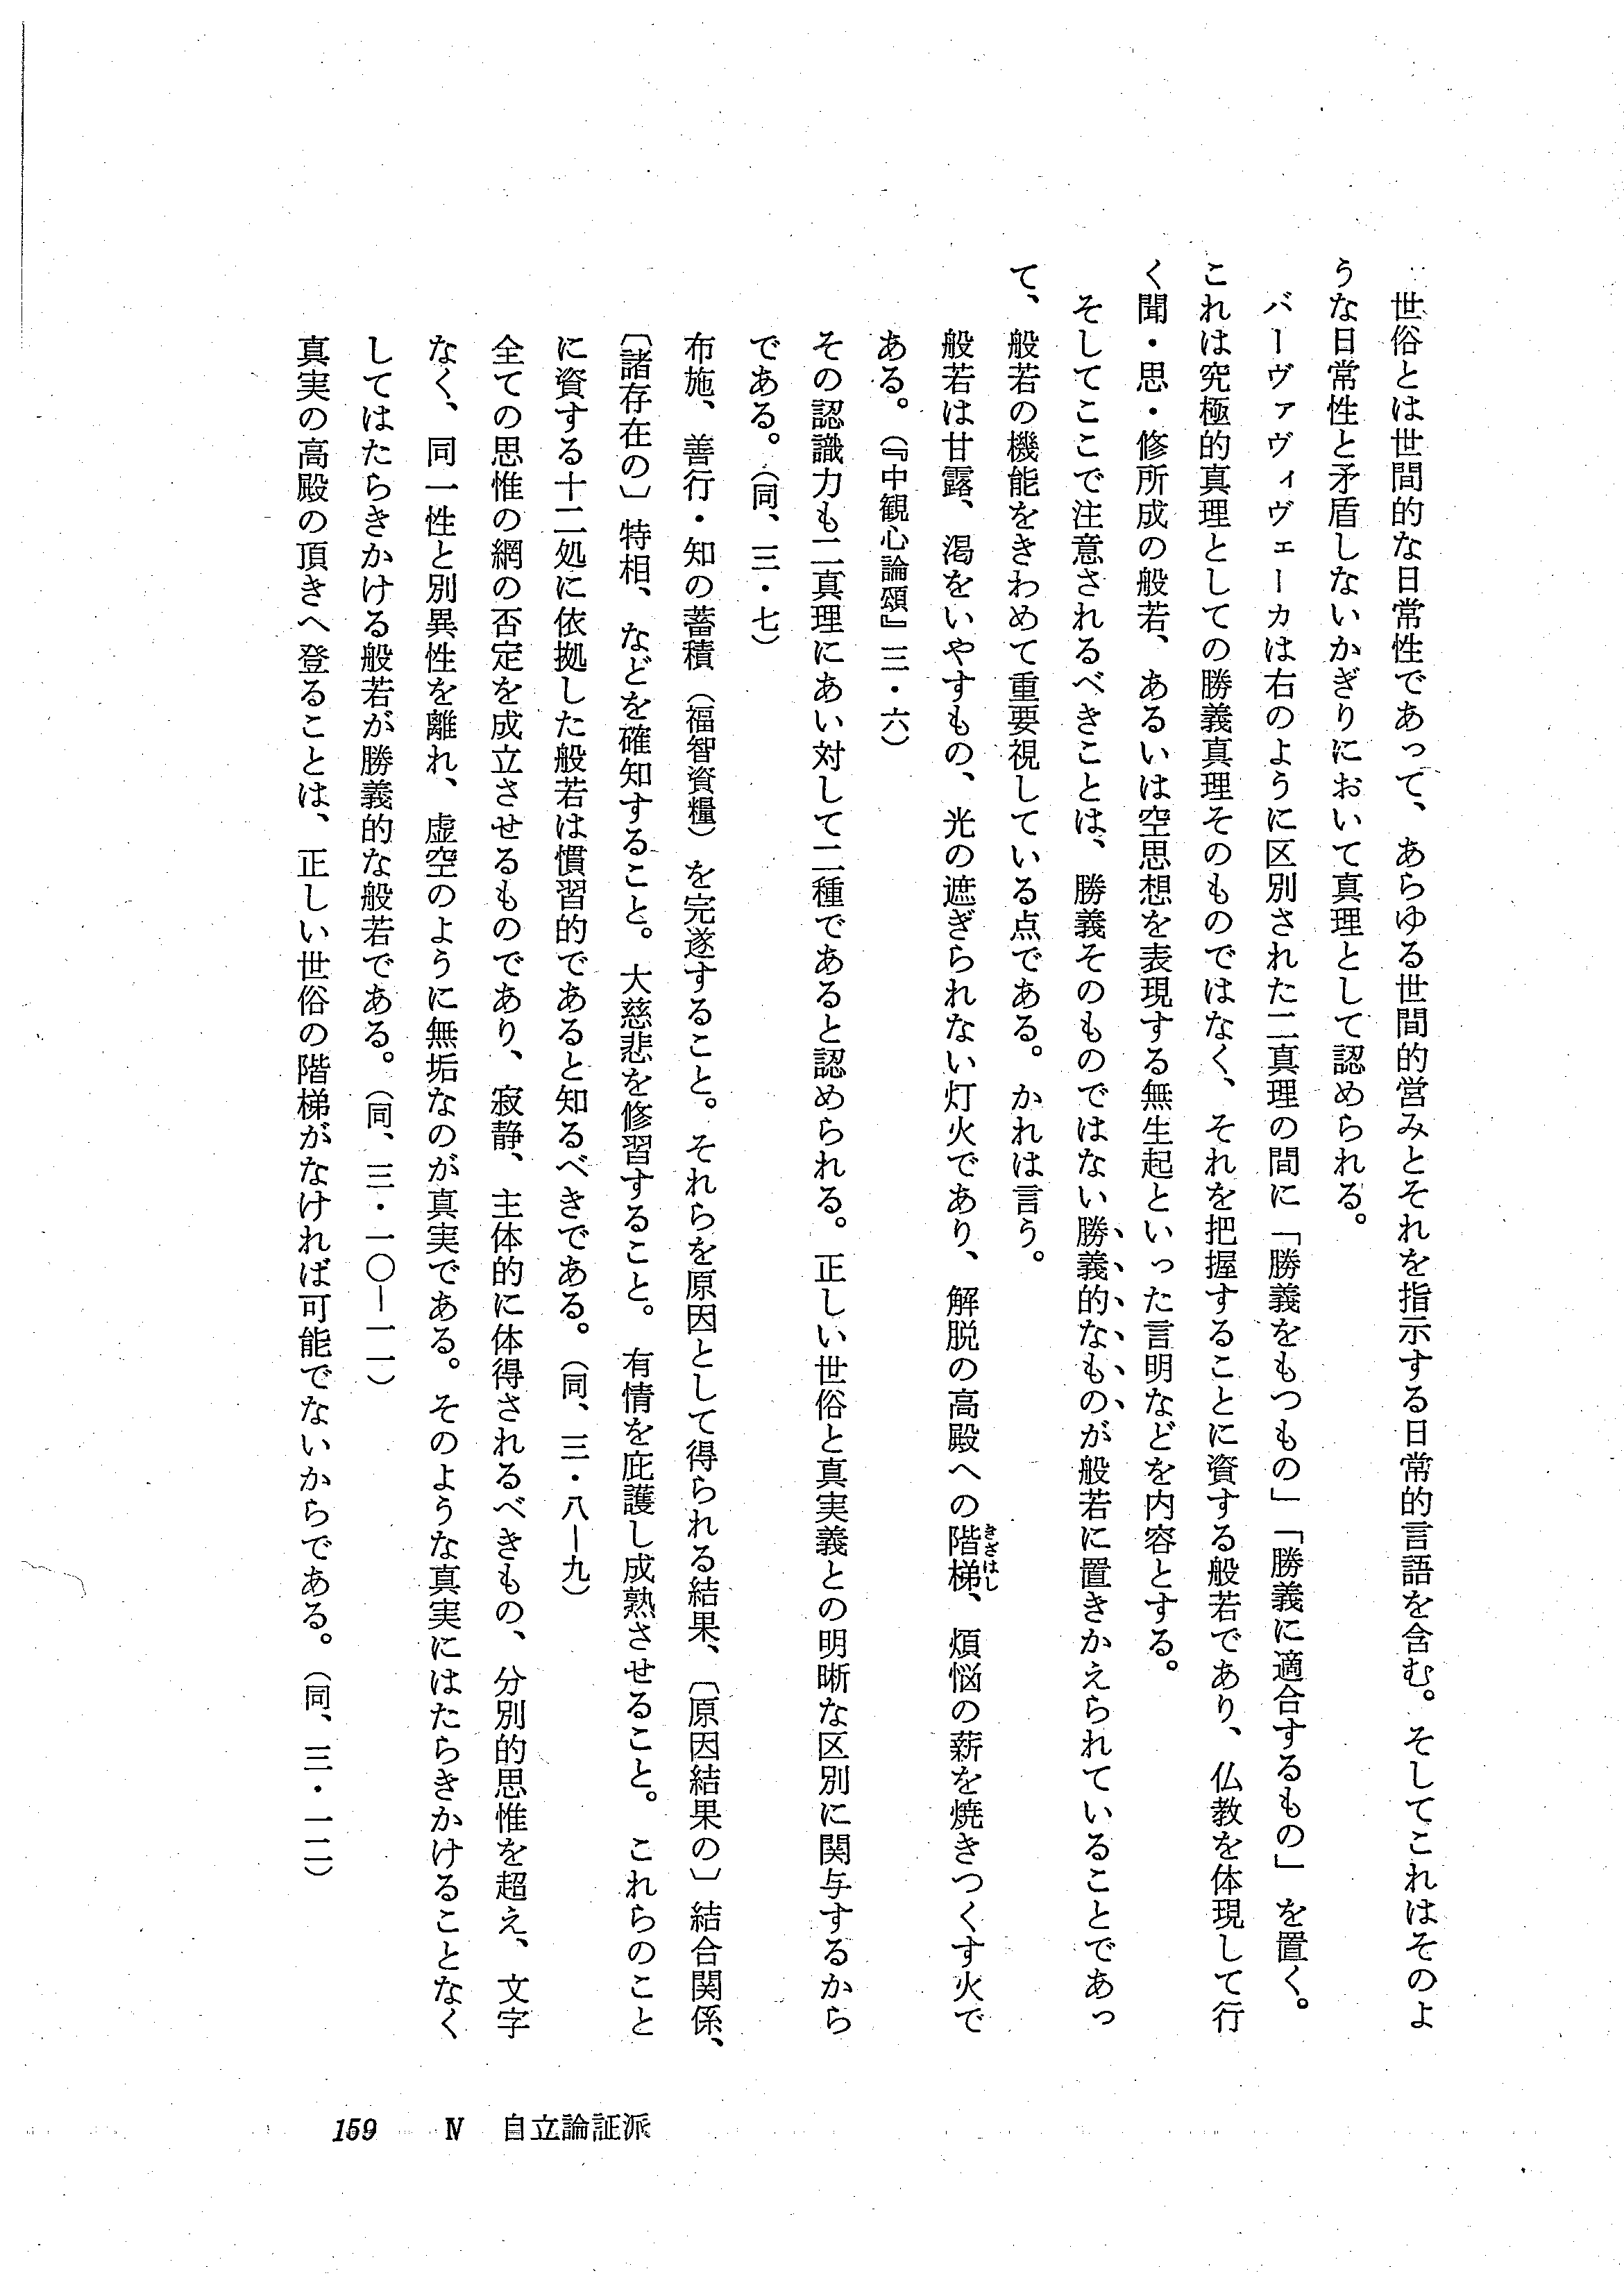 世俗とは世間的な日常性であって、あらゆる世間的営みとそれを指示する日常的言語を含む。そしてこれはそのよ
うな日常性と矛盾しないかぎりにおいて真理として認められる。
バーヴァヴィヴェーカは右のように区別された二真理の間に「勝義をもつもの」「勝義に適合するもの」を置く。
これは究極的真理としての勝義真理そのものではなく、それを把握することに資する般若であり、仏教を体現して行
く聞・思・修所成の般若、あるいは空思想を表現する無生起といった言明などを内容とする。
そしてここで注意されるべきことは、勝義そのものではない勝義的なものが般若に置きかえられていることであっ
て、般若の機能をきわめて重要視している点である。かれは言う。
般若は甘露、渇をいやすもの、光の遮ぎられない灯火であり、解脱の高殿への階梯、煩悩の薪を焼きつくす火で
きざはし
ある。(『中観心論頌』三・六)
その認識力も二真理にあい対して二種であると認められる。正しい世俗と真実義との明晰な区別に関与するから
である。(同、三・七)
布施、善行・知の蓄積(福智資糧)を完遂すること。それらを原因として得られる結果、〔原因結果の〕結合関係、
〔諸存在の〕特相、などを確知すること。大慈悲を修習すること。有情を庇護し成熟させること。これらのこと
に資する十二処に依拠した般若は慣習的であると知るべきである。(同、三・八―九)
全ての思惟の網の否定を成立させるものであり、寂静、主体的に体得されるべきもの、分別的思惟を超え、文字
なく、同一性と別異性を離れ、虚空のように無垢なのが真実である。そのような真実にはたらきかけることなく
してはたらきかける般若が勝義的な般若である。(同、三・一〇―一一)
真実の高殿の頂きへ登ることは、正しい世俗の階梯がなければ可能でないからである。(同、三・一二)
159 Ⅳ 自立論証派